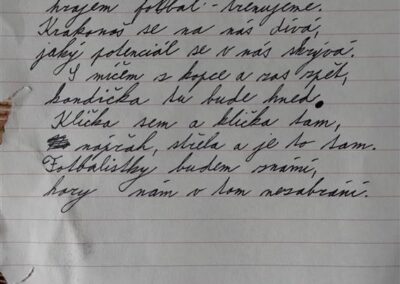 hrajem fotbal - trénujeme.
Krakonoš se na nás dívá,
jaký potenciál se v nás skrývá.
S míčem z kopce a zas zpět,
kondička tu bude hned.
Klička sem a klička tam,
nápřah, střela a je to tam.
Fotbalistky budem známí,
hory nám v tom nezabrání.